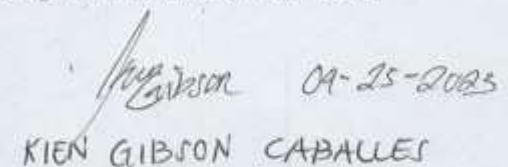 Gibson 09-25-2023
KIEN GIBSON CABALLES